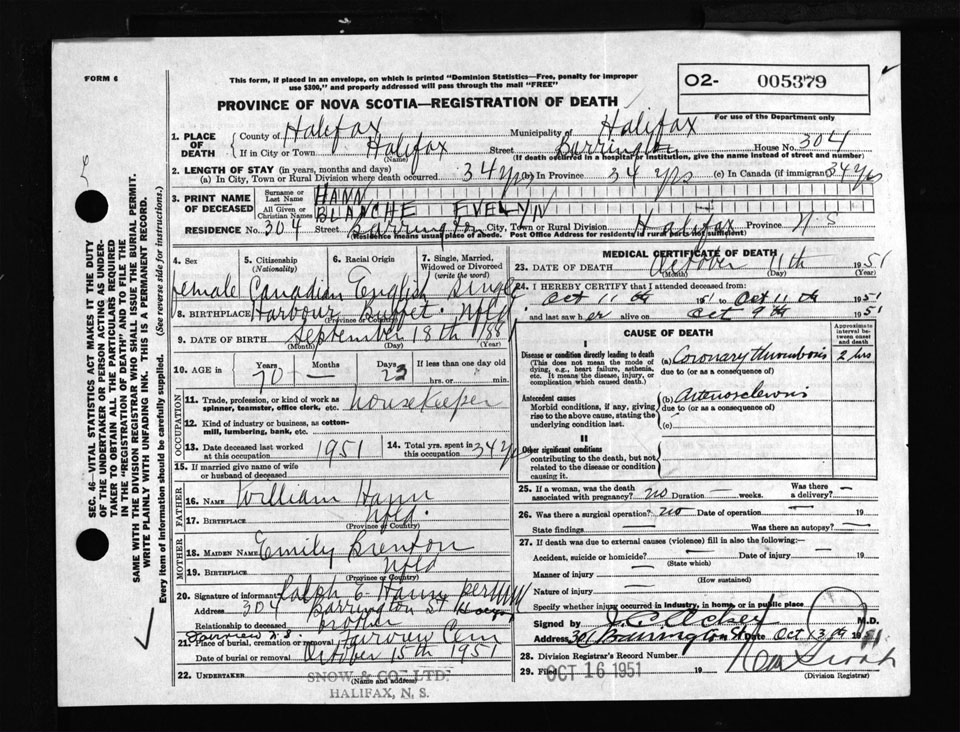 FORM 6
This form, if placed in an envelope, on which is printed "Dominion Statistics—Free, penalty for improper
use $300," and properly addressed will pass through the mail "FREE"
PROVINCE OF NOVA SCOTIA—REGISTRATION OF DEATH
O2- 005379
For use of the Department only
1. PLACE OF DEATH
County of Halifax Municipality of Halifax
If in City or Town Halifax Street Barrington House No. 304
(Name) (If death occurred in a hospital or institution, give the name instead of street and number)
2. LENGTH OF STAY (in years, months and days)
(a) In City, Town or Rural Division where death occurred 34 yrs (b) In Province 34 yrs (c) In Canada (if immigrant) 34 yrs
3. PRINT NAME OF DECEASED
Surname or Last Name HANN
All Given or Christian Names BLANCHE EVELYN
RESIDENCE No. 304 Street Barrington City, Town or Rural Division Halifax Province N S
(Residence means usual place of abode. Post Office Address for residents in rural parts not sufficient)
4. Sex 5. Citizenship (Nationality) 6. Racial Origin 7. Single, Married, Widowed or Divorced (write the word)
female Canadian English Single
8. BIRTHPLACE Harbour Buffet. Nfld.
(Province or Country)
9. DATE OF BIRTH September 18th
(Month) (Day) (Year)
10. AGE in Years Months Days If less than one day old
70 — 23 hrs. or min.
OCCUPATION
11. Trade, profession, or kind of work as
spinner, teamster, office clerk, etc. housekeeper
12. Kind of industry or business, as cotton-
mill, lumbering, bank, etc.
13. Date deceased last worked
at this occupation 1951
14. Total yrs. spent in
this occupation 34 yrs
15. If married give name of wife
or husband of deceased
FATHER
16. Name William Hann
17. Birthplace Nfld.
(Province or Country)
MOTHER
18. MAIDEN NAME Emily Brenton
19. Birthplace Nfld
(Province or Country)
20. Signature of informant Ralph E Hann per
Address 304 Barrington St
Relationship to deceased brother
Fairview N.S.
21. Place of burial, cremation or removal Fairview Cem
Date of burial or removal October 15th 1951
22. UNDERTAKER SNOW & CO. LTD.
(Name and address)
HALIFAX, N. S.
MEDICAL CERTIFICATE OF DEATH
23. DATE OF DEATH October 11th 1951
(Month) (Day) (Year)
24. I HEREBY CERTIFY that I attended deceased from:
Oct 11th 1951 to Oct 11th 1951
and last saw her alive on Oct 9th 1951
CAUSE OF DEATH
Approximate interval between onset and death
I
Disease or condition directly leading to death (a) Coronary thrombosis 2 hrs
(This does not mean the mode of dying, e.g., heart failure, asthenia, etc. It means the disease, injury, or complication which caused death.)
due to (or as a consequence of)
Antecedent causes (b) Arteriosclerosis
Morbid conditions, if any, giving rise to the above cause, stating the underlying condition last.
due to (or as a consequence of)
(c)
II
Other significant conditions
contributing to the death, but not
related to the disease or condition
causing it.
25. If a woman, was the death
associated with pregnancy? no Duration — weeks. Was there a delivery? —
26. Was there a surgical operation? no Date of operation — 19
State findings — Was there an autopsy? —
27. If death was due to external causes (violence) fill in also the following:—
Accident, suicide or homicide? — Date of injury — 19
(State which)
Manner of injury —
(How sustained)
Nature of injury —
Specify whether injury occurred in industry, in home, or in public place
Signed by M.D.
Address Barrington St Date Oct
28. Division Registrar's Record Number
29. Filed OCT 16 1951 19
(Division Registrar)
SEC. 46—VITAL STATISTICS ACT MAKES IT THE DUTY
OF THE UNDERTAKER OR PERSON ACTING AS UNDER-
TAKER TO OBTAIN ALL THE PARTICULARS REQUIRED
IN THE "REGISTRATION OF DEATH" AND TO FILE THE
SAME WITH THE DIVISION REGISTRAR WHO SHALL ISSUE THE BURIAL PERMIT.
WRITE PLAINLY WITH UNFADING INK. THIS IS A PERMANENT RECORD.
Every item of information should be carefully supplied. (See reverse side for instructions.)